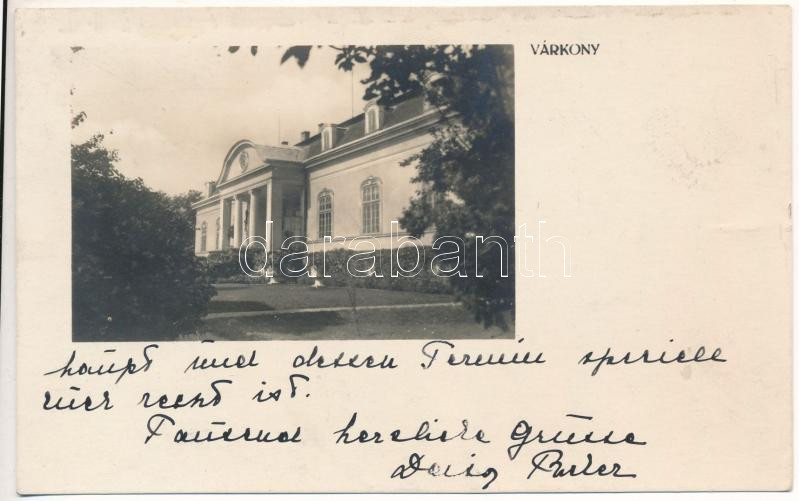 VÁRKONY
darabanth
haupt und dessen Termin speciell
mir recht ist.
Tausend herzliche Grüsse
Daisy